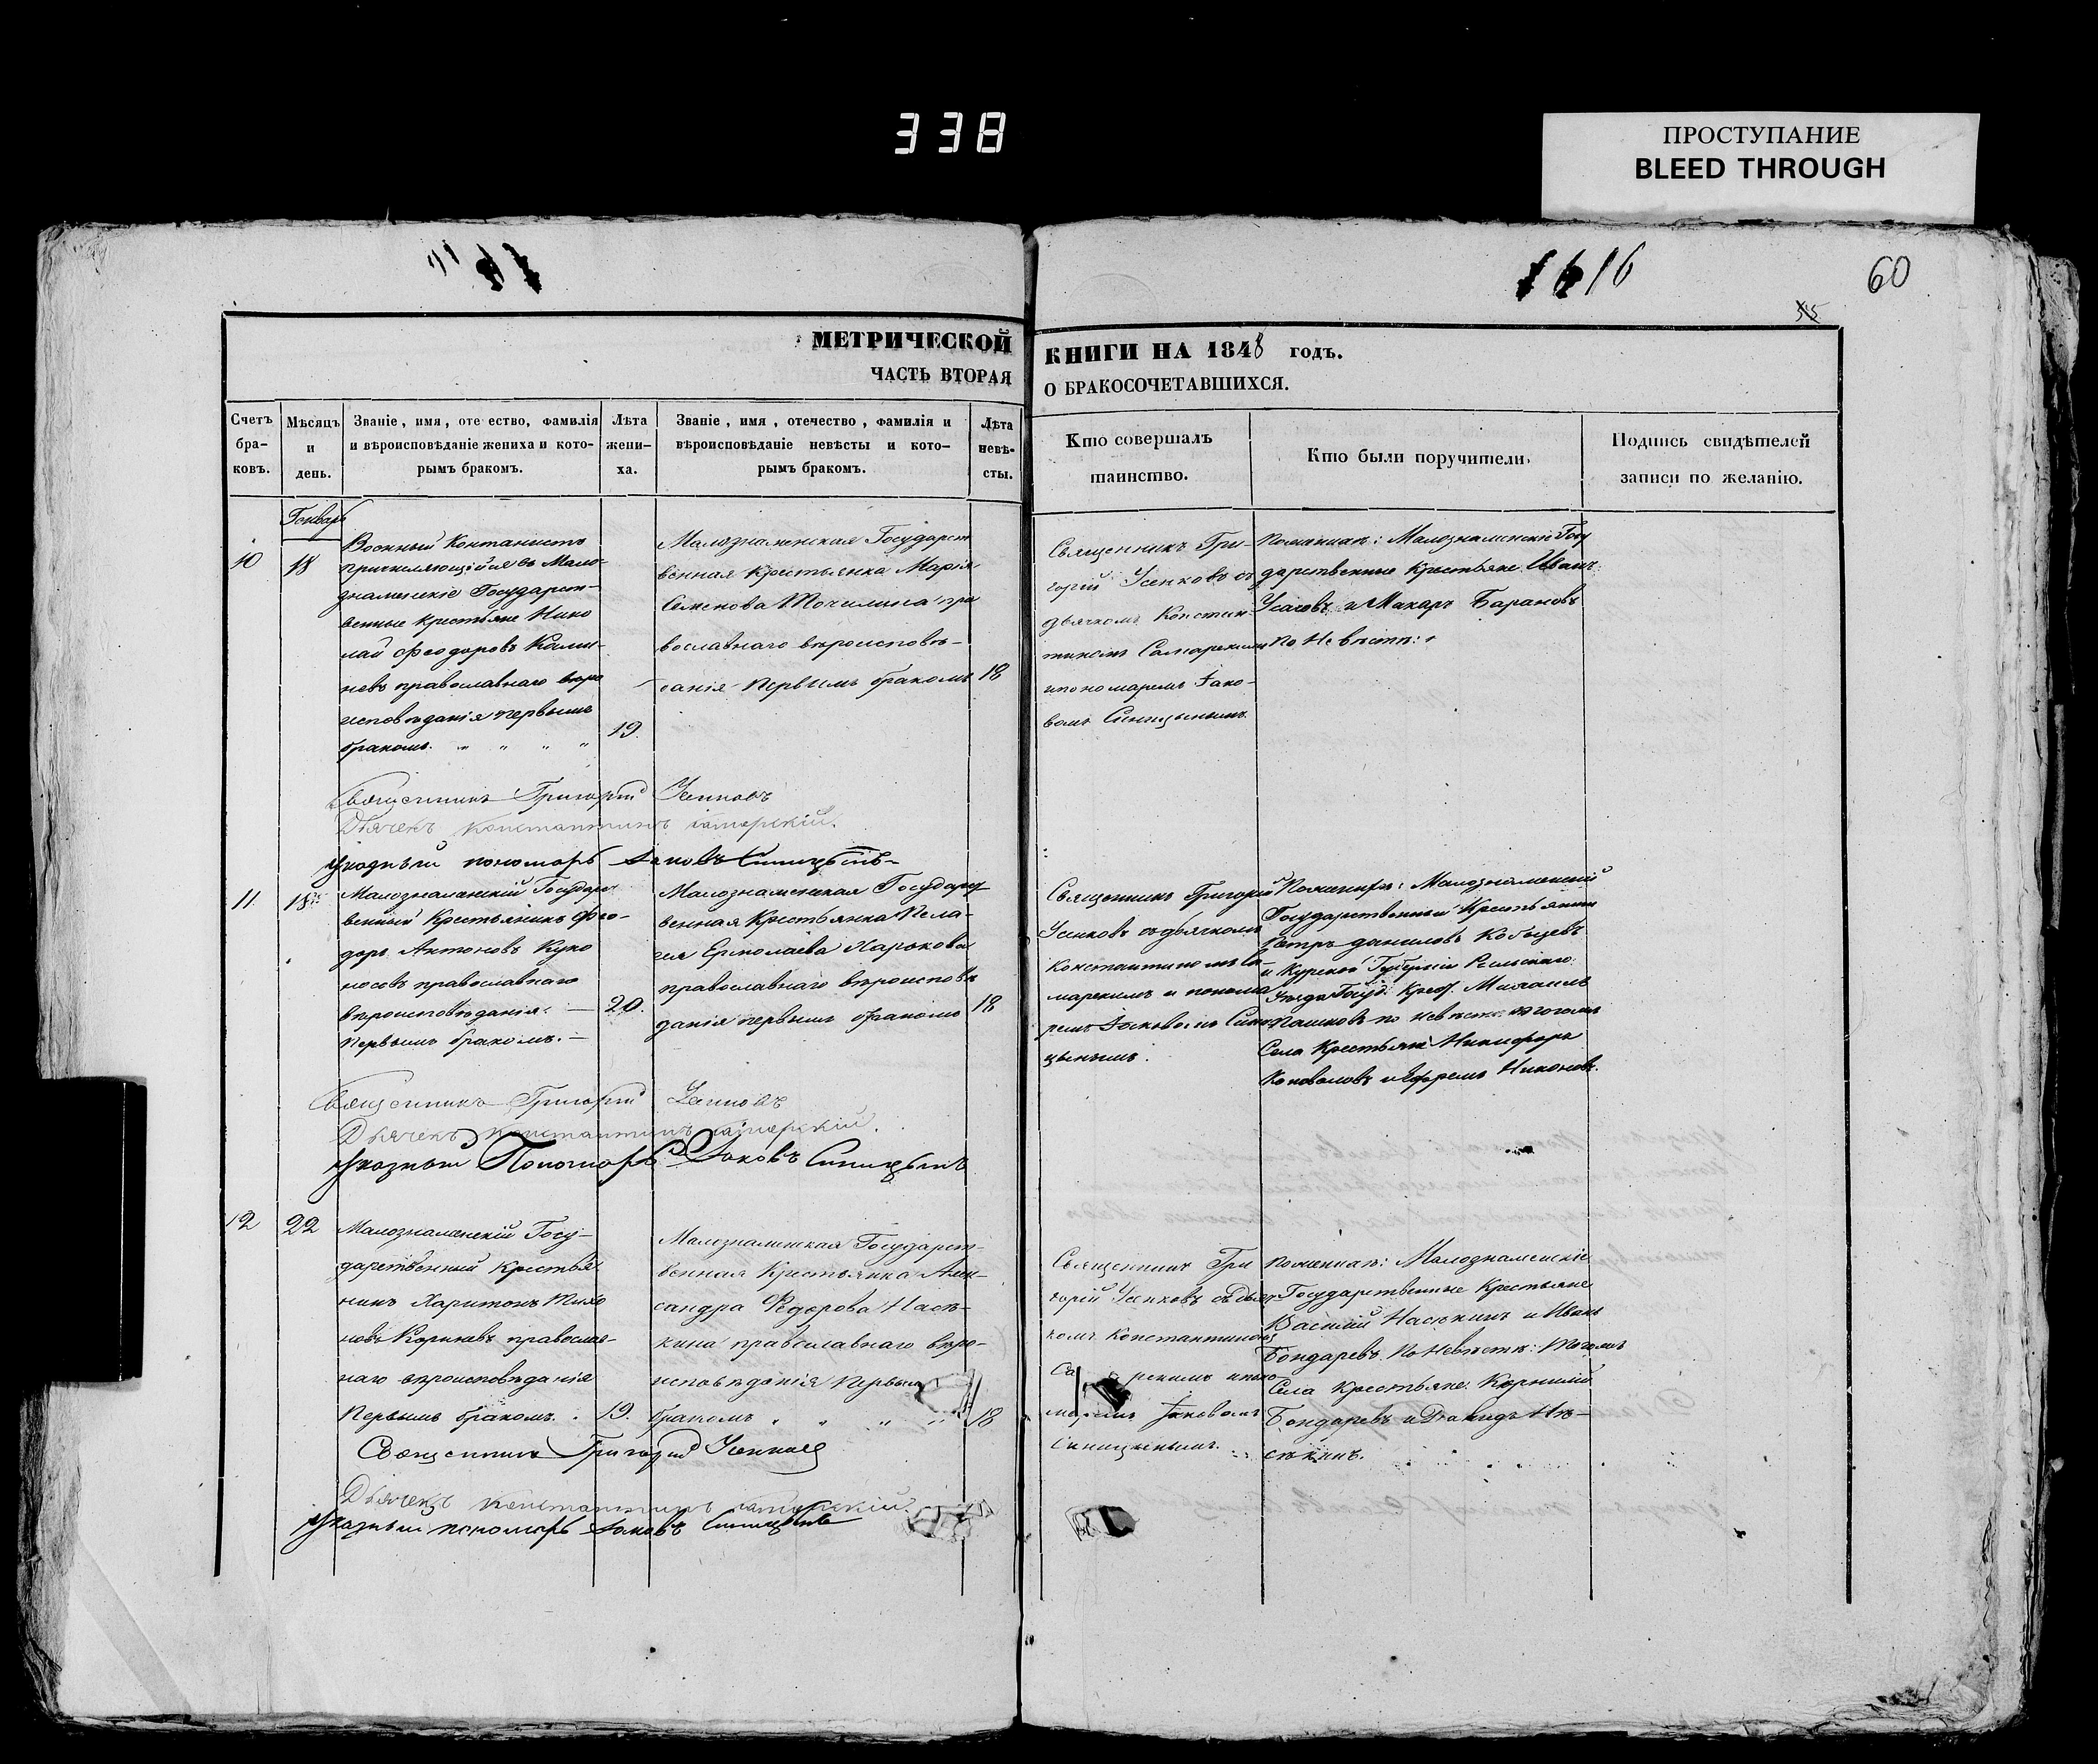 338
ПРОСТУПАНИЕ
BLEED THROUGH
16
60
МЕТРИЧЕСКОЙ
ЧАСТЬ ВТОРАЯ
КНИГИ НА 1848 годъ.
О БРАКОСОЧЕТАВШИХСЯ.
Счетъ бра- ковъ.
Мѣсяцъ и день.
Званіе, имя, оте ество, фамилія и вѣроисповѣданіе жениха и кото- рымъ бракомъ.
Лѣта жени- ха.
Званіе, имя, отечество, фамилія и вѣроисповѣданіе невѣсты и кото- рымъ бракомъ.
Лѣта невѣ- сты.
Кто совершалъ таинство.
Кто были поручители
Подпись свидѣтелей записи по желанію.
Генварь
10
18
Военный Кантанистъ
причисляющійся въ Мало-
знаменскіе Государст-
венные крестьяне Нико
лай Феодоровъ Кали-
невъ православнаго вѣро
исповѣданія первымъ
бракомъ.
19.
Малознаменская Государст
венная Крестьянка Марія
Семенова Точилина пра
вославнаго вѣроисповѣ-
данія первымъ бракомъ
18
Священникъ Гри-
горій Усенковъ съ
дьячкомъ Констан-
тиномъ Самарскимъ
и пономаремъ Іако-
вомъ Синицынымъ
По женихѣ: Малознаменскіе Госу
дарственные Крестьяне Иванъ
Усаговъ и Макаръ Барановъ
по Невѣстѣ:
Священникъ Григорій Усенковъ
Дьячекъ Константинъ Самарскій.
Указный пономарь Іаковъ Синицынъ
11
18
Малознаменскій Государст
венный Крестьянинъ Фео-
доръ Антоновъ Куко
носовъ православнаго
вѣроисповѣданія.
первымъ бракомъ.
20.
Малознаменская Государст
венная Крестьянка Пела-
гея Ермолаева Харькова
православнаго вѣроисповѣ
данія первымъ бракомъ
18
Священникъ Григорій
Усенковъ съ дьячкомъ
Константиномъ Са-
марскимъ и понома
ремъ Іаковомъ Сини
цынымъ.
По женихѣ: Малознаменскій
Государственный Крестьянинъ
Петръ Даниловъ Кобыцевъ
и Курской Губерніи Рыльскаго
Уезда Госуд. Крест. Михаилъ
Пашковъ по невѣстѣ тогожъ
Села Крестьяне Никифоръ
Коноваловъ и Ефремъ Никоновъ.
Священникъ Григорій Усенковъ
Дьячекъ Константинъ Самарскій.
Указный Пономарь Іаковъ Синицынъ
12
22
Малознаменскій Госу-
дарственный Крестья
нинъ Харитонъ Тихо
новъ Кориневъ православ-
наго вѣроисповѣданія
Первымъ бракомъ.
19.
Малознаменская Государст-
венная Крестьянка Алек-
сандра Федорова Насѣ-
кина православнаго вѣро-
исповѣданія Первымъ
бракомъ
18
Священникъ Гри
горій Усенковъ съ Дьяч
комъ Константиномъ
Са рскимъ и поно
маремъ Іаковомъ
Синицынымъ.
По женихѣ: Малознаменскіе
Государственные Крестьяне
Василій Насѣкинъ и Иванъ
Бондаревъ. По Невѣстѣ: Тогожъ
Села Крестьяне Корнилій
Бондаревъ и Давидъ На-
сѣкинъ.
Священникъ Григорій Усенковъ
Дьячекъ Константинъ Самарскій.
Указный пономарь Іаковъ Синицынъ